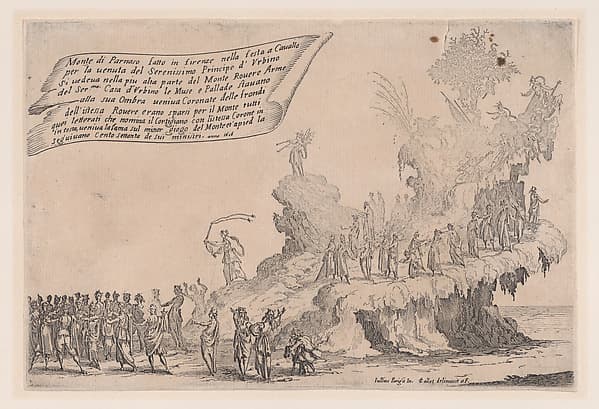 Monte di Parnaso fatto in firenze nella festa a Cauallo
per la uenuta del Serenissimo Principe d' Vrbino
Si uedeua nella piu alta parte del Monte Rouere Arme
del Ser.mo Casa d'Vrbino le Muse e Pallade Stauano
alla sua Ombra ueniua Coronate delle frondi
dell'istessa Rouere erano sparsi per il Monte tutti
quei letterati che nomina il Cortigiano con l'istessa Corone in
testa, ueniua la fama sul minor giogo del Monte et a pied la
seguiuano Cento settanta de sui ministri.
Iulius Parigii In. Callot delineauit et F.